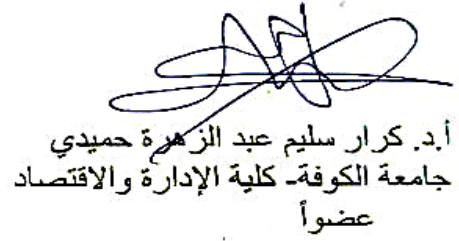 أ.د. كرار سليم عبد الزهرة حميدي
جامعة الكوفة- كلية الإدارة والاقتصاد
عضواً